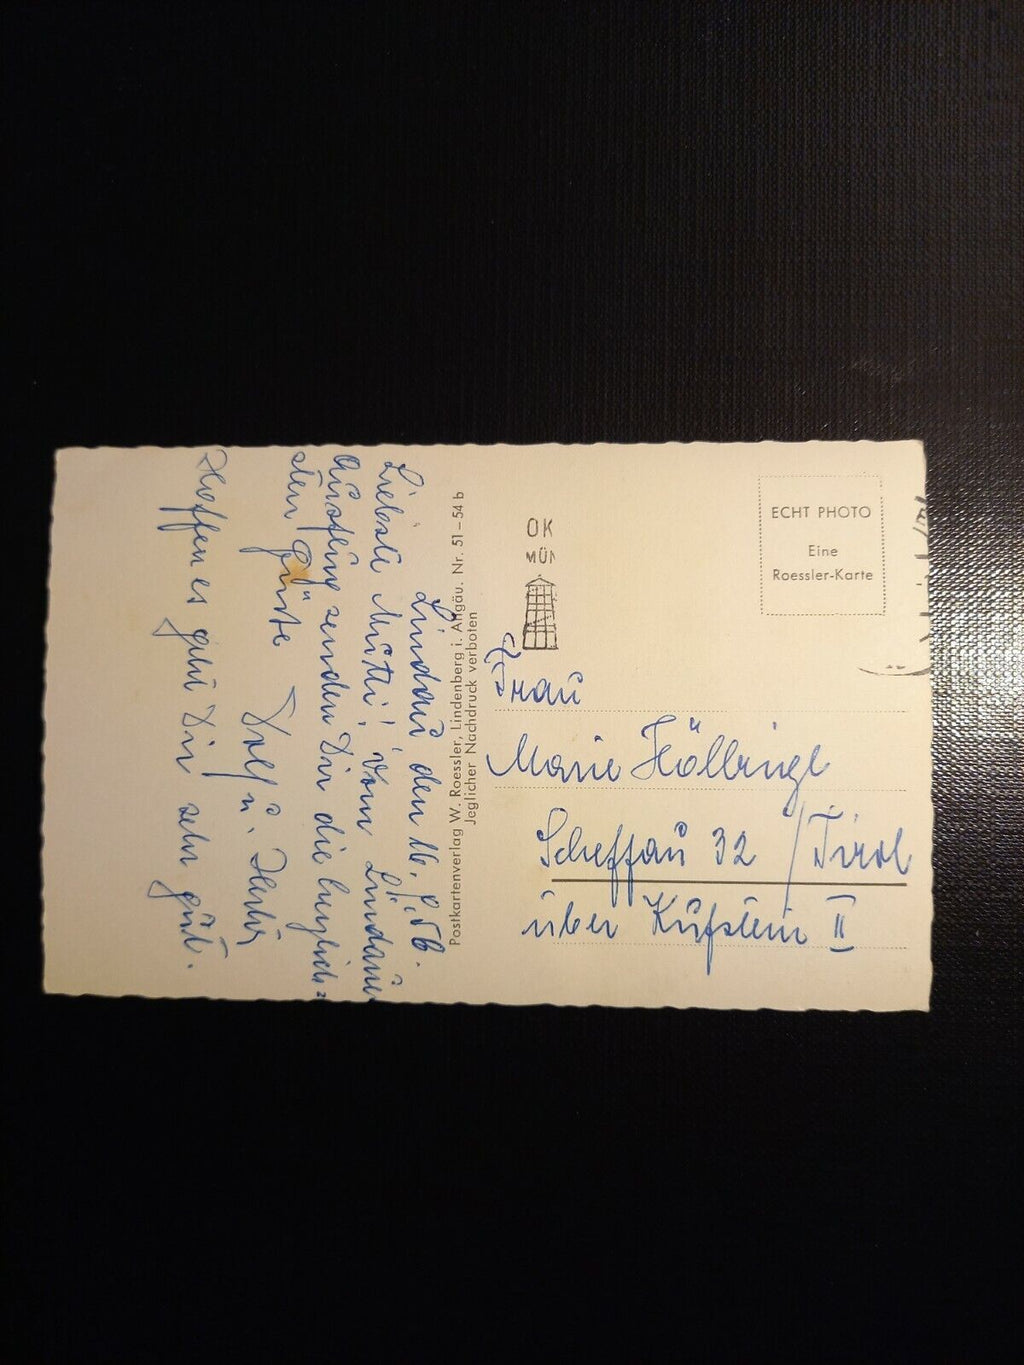 Lindau den 16. 9. 56.
Liebste Mutti! Vom Lindau
Ausflug senden Dir die herzlich=
sten Grüße
Dolf u.
Hoffen es geht Dir sehr gut.
Postkartenverlag W. Roessler, Lindenberg i. Allgäu. Nr. 51 – 54 b
Jeglicher Nachdruck verboten
OK
MÜN
ECHT PHOTO
Eine
Roessler-Karte
Frau
Marie Höllrigl
Scheffau 32 / Tirol
über Kufstein II